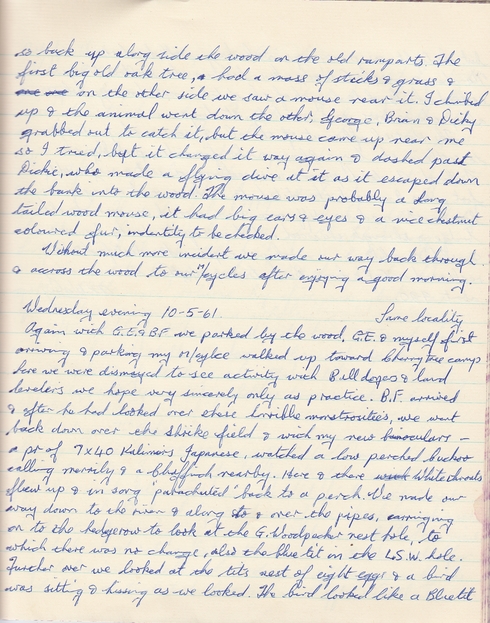 so back up along side the wood on the old ramparts. The
first big old oak tree, had a mass of sticks & grass &
on the other side we saw a mouse near it. I climbed
up & the animal went down the other. George, Brian & Dicky
grabbed out to catch it, but the mouse came up near me
so I tried, but it changed it way again & dashed past
Dickie, who made a flying dive at it as it escaped down
the bank into the wood. The mouse was probably a Long
tailed wood mouse, it had big ears & eyes & a nice chestnut
coloured fur, indentity to be checked.
Without much more incident we made our way back through
& accross the wood to our M/cycles after enjoying a good morning.
Wednesday evening 10-5-61. Same locality
Again with G.E. & B.F. we parked by the wood. G.E. & myself first
arriving & parking my M/cylce walked up toward Cherry tree camp
here we were dismayed to see activity with Bulldozers & land
levelers we hope very sincerely only as practice. B.F. arrived
& after he had looked over these horrible monstrosities, we went
back down over the shrike field & with my new binoculars –
a pr of 7x40 Japanese, watched a low perched
calling merrily & a nearby. Here & there Whitethroats
flew up & in song 'parachuted' back to a perch. We made our
way down to the river & along & over the pipes, carrying
on to the hedgerow to look at the G. Woodpecker nest hole, to
which there was no change, also the bluetit in the L.S.W. hole.
Further over we looked at the tits nest of eight eggs & a bird
was sitting & hissing as we looked. The bird looked like a Bluetit